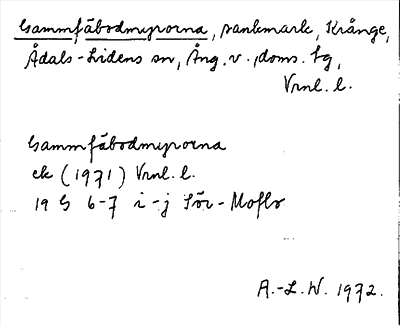 Gammfäbodmyrorna, sankmark, Krånge,
Ådals-Lidens sn, Ång. v., doms. tg,
Vrnl. l.
Gammfäbodmyrorna
ek (1971) Vrnl. l.
19 G 6-7 i-j Sör-Moflo
A.-L. W. 1972.